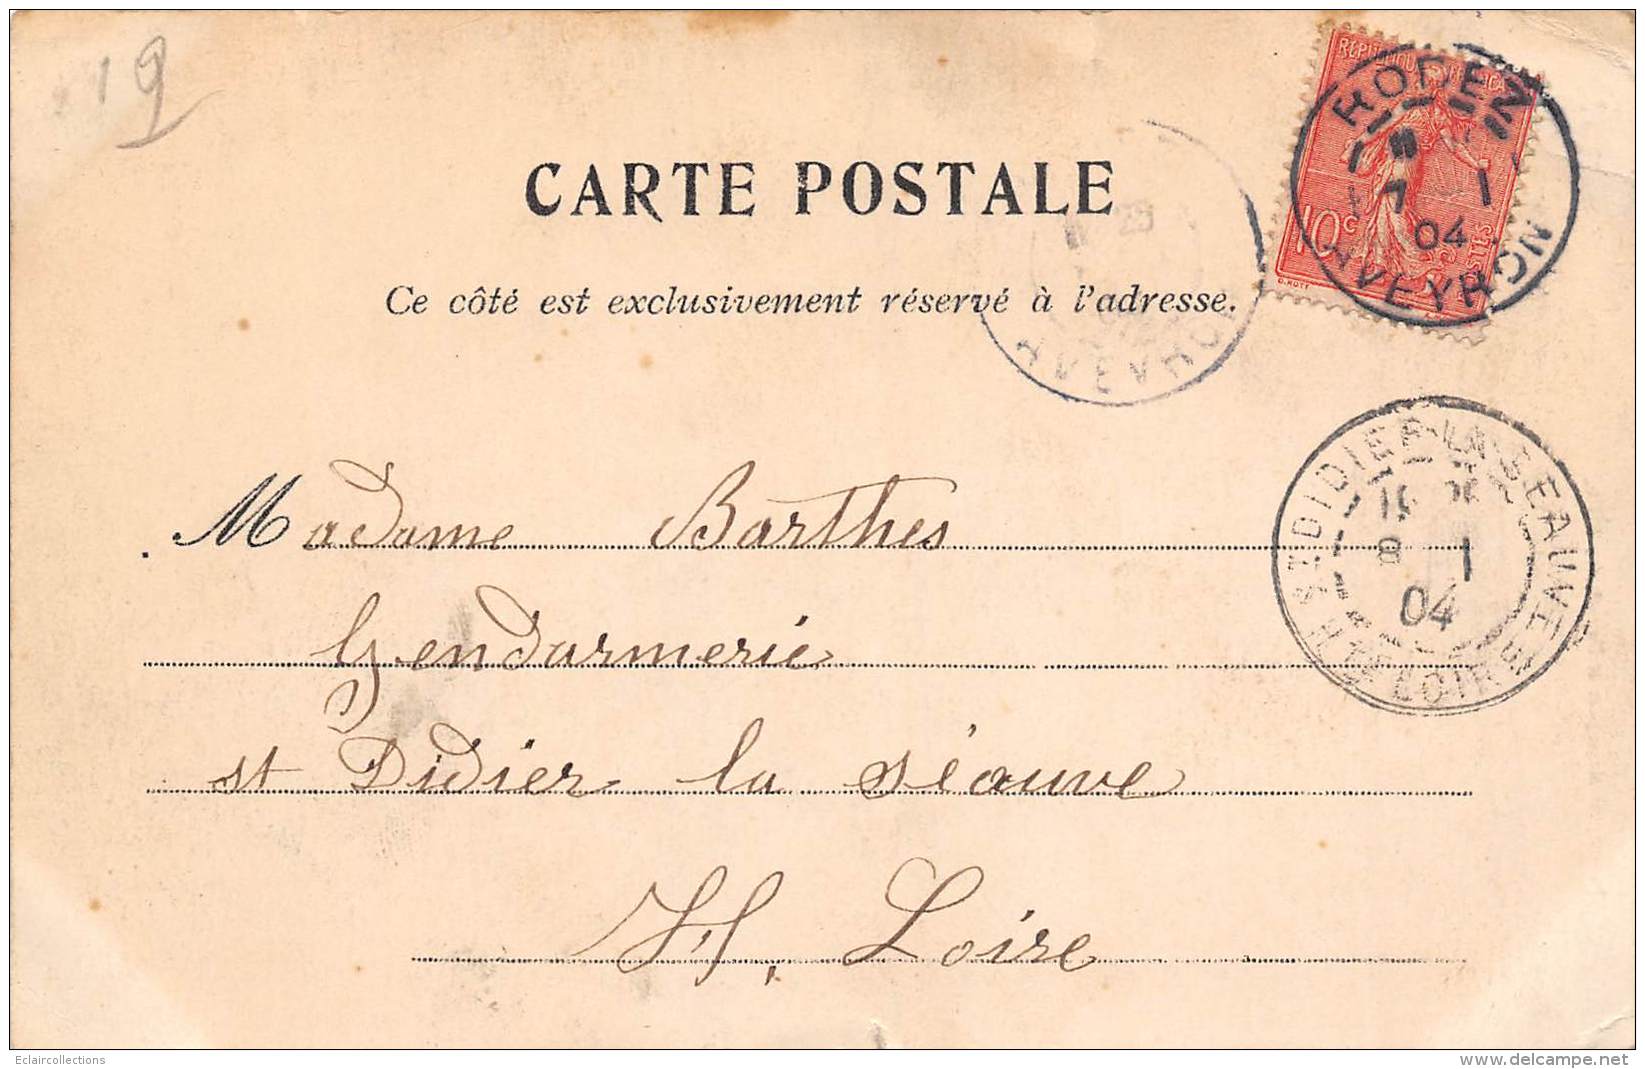 19
CARTE POSTALE
Ce côté est exclusivement réservé à l'adresse.
REPUBLIQUE FRANCAISE
10c
POSTES
O. ROTY
RODEZ
7 1
04
AVEYRON
AVEYRON
ST DIDIER-LA-SEAUVE
8 1
04
HTE LOIRE
Madame Barthes
Gendarmerie
st Didier la séauve
H. Loire
Eclaircollections
www.delcampe.net